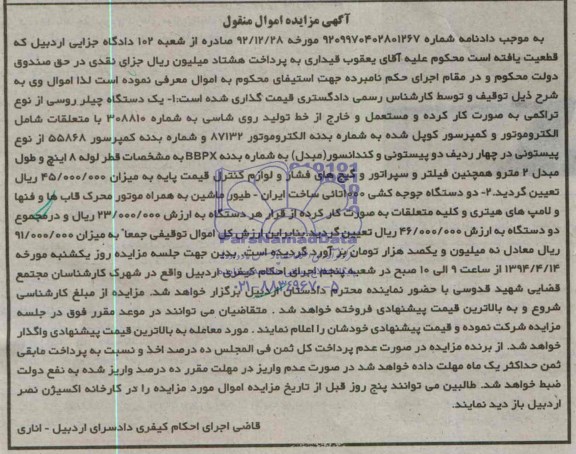 آگهی مزایده اموال منقول
به موجب دادنامه شماره ۹۲۰۹۹۷۰۴۰۲۸۰۱۲۶۷ مورخه ۹۲/۱۲/۲۸ صادره از شعبه ۱۰۲ دادگاه جزایی اردبیل که
قطعیت یافته است محکوم علیه آقای یعقوب قیداری به پرداخت هشتاد میلیون ریال جزای نقدی در حق صندوق
دولت محکوم و در مقام اجرای حکم نامبرده جهت استیفای محکوم به اموال معرفی نموده است لذا اموال وی به
شرح ذیل توقیف و توسط کارشناس رسمی دادگستری قیمت گذاری شده است:۱- یک دستگاه چیلر روسی از نوع
تراکمی به صورت کار کرده و مستعمل و خارج از خط تولید روی شاسی به شماره ۳۰۸۸۱۰ با متعلقات شامل
الکتروموتور و کمپرسور کوپل شده به شماره بدنه الکتروموتور ۸۷۱۳۲ و شماره بدنه کمپرسور ۵۵۸۶۸ از نوع
پیستونی در چهار ردیف دو پیستونی و کندانسور(مبدل) به شماره بدنه BBPX به مشخصات قطر لوله ۸ اینچ و طول
مبدل ۲ مترو همچنین فیلتر و سپراتور و گیج های فشار و لوازم کنترل قیمت پایه به میزان ۴۵/۰۰۰/۰۰۰ ریال
تعیین گردید.۲- دو دستگاه جوجه کشی ۱۰۰۰تائی ساخت ایران - طیور ماشین به همراه موتور محرک قاب ها و فنها
و لامپ های هیتری و کلیه متعلقات به صورت کار کرده از قرار هر دستگاه به ارزش ۲۳/۰۰۰/۰۰۰ ریال و درمجموع
دو دستگاه به ارزش ۴۶/۰۰۰/۰۰۰ ریال تعیین گردید.بنابراین ارزش کل اموال توقیفی جمعا" به میزان ۹۱/۰۰۰/۰۰۰
ریال معادل نه میلیون و یکصد هزار تومان برآورد گردیده است. بدین جهت جلسه مزایده روز یکشنبه مورخه
۱۳۹۴/۴/۱۴ از ساعت ۹ الی ۱۰ صبح در شعبه پنجم اجرای احکام کیفری اردبیل واقع در شهرک کارشناسان مجتمع
قضایی شهید قدوسی با حضور نماینده محترم دادستان اردبیل برگزار خواهد شد. مزایده از مبلغ کارشناسی
شروع و به بالاترین قیمت پیشنهادی فروخته خواهد شد . متقاضیان می توانند در موعد مقرر فوق در جلسه
مزایده شرکت نموده و قیمت پیشنهادی خودشان را اعلام نمایند . مورد معامله به بالاترین قیمت پیشنهادی واگذار
خواهد شد. از برنده مزایده در صورت عدم پرداخت کل ثمن فی المجلس ده درصد اخذ و نسبت به پرداخت مابقی
ثمن حداکثر یک ماه مهلت داده خواهد شد در صورت عدم واریز در مهلت مقرر ده درصد واریز شده به نفع دولت
ضبط خواهد شد. طالبین می توانند پنج روز قبل از تاریخ مزایده اموال مورد مزایده را در کارخانه اکسیژن نصر
اردبیل باز دید نمایند.
قاضی اجرای احکام کیفری دادسرای اردبیل - اناری
ParsNamadData
۰۲۱-۸۸۳۴۹۶۷۰-۵